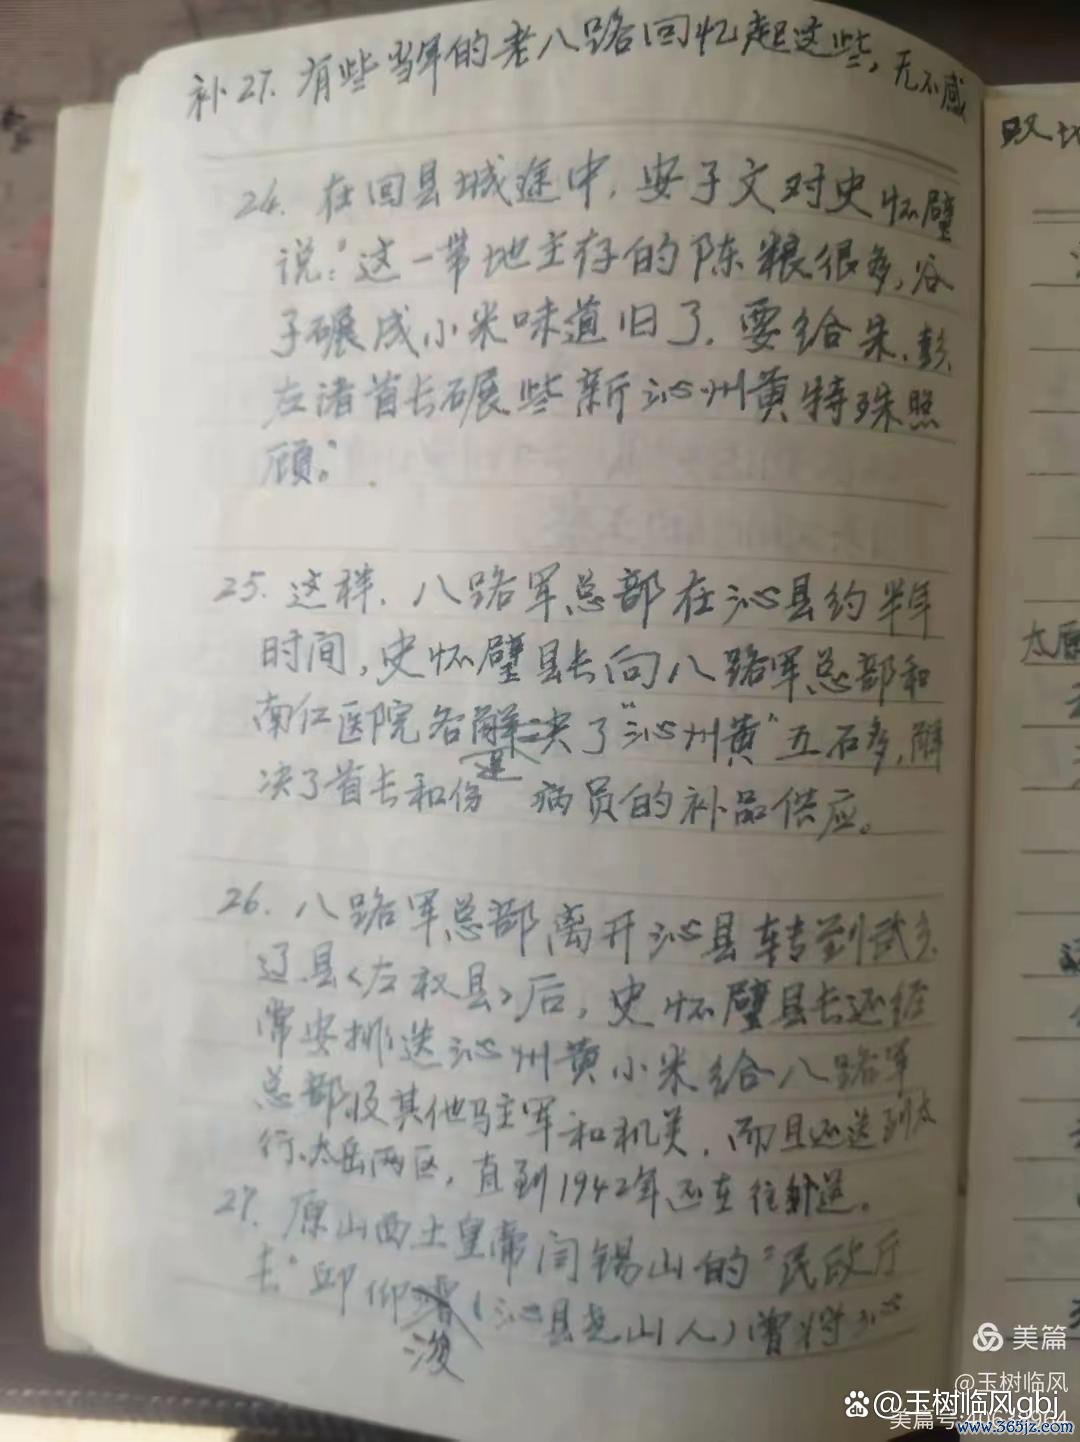 补27. 有些当年的老八路回忆起这些，无不感
24. 在回县城途中，安子文对史怀璧
说：“这一带地主存的陈粮很多，谷
子碾成小米味道旧了，要给朱、彭、
左诸首长碾些新沁州黄特殊照
顾。”
25. 这样，八路军总部在沁县约半年
时间，史怀璧县长向八路军总部和
南仁医院各解决了“沁州黄”五石多，解
决了首长和伤 病员的补品供应。
26. 八路军总部离开沁县转到武乡、
辽县<左权县>后，史怀璧县长还经
常安排送沁州黄小米给八路军
总部及其他驻军和机关，而且还送到太
行、太岳两区，直到1942年还在往外送。
27. 原山西土皇帝闫锡山的“民政厅
长”邱仰 (沁县尧山人)曾将沁
浚
太原
美篇
@玉树临风
@玉树临风gbj
美篇号:
www.365jz.com